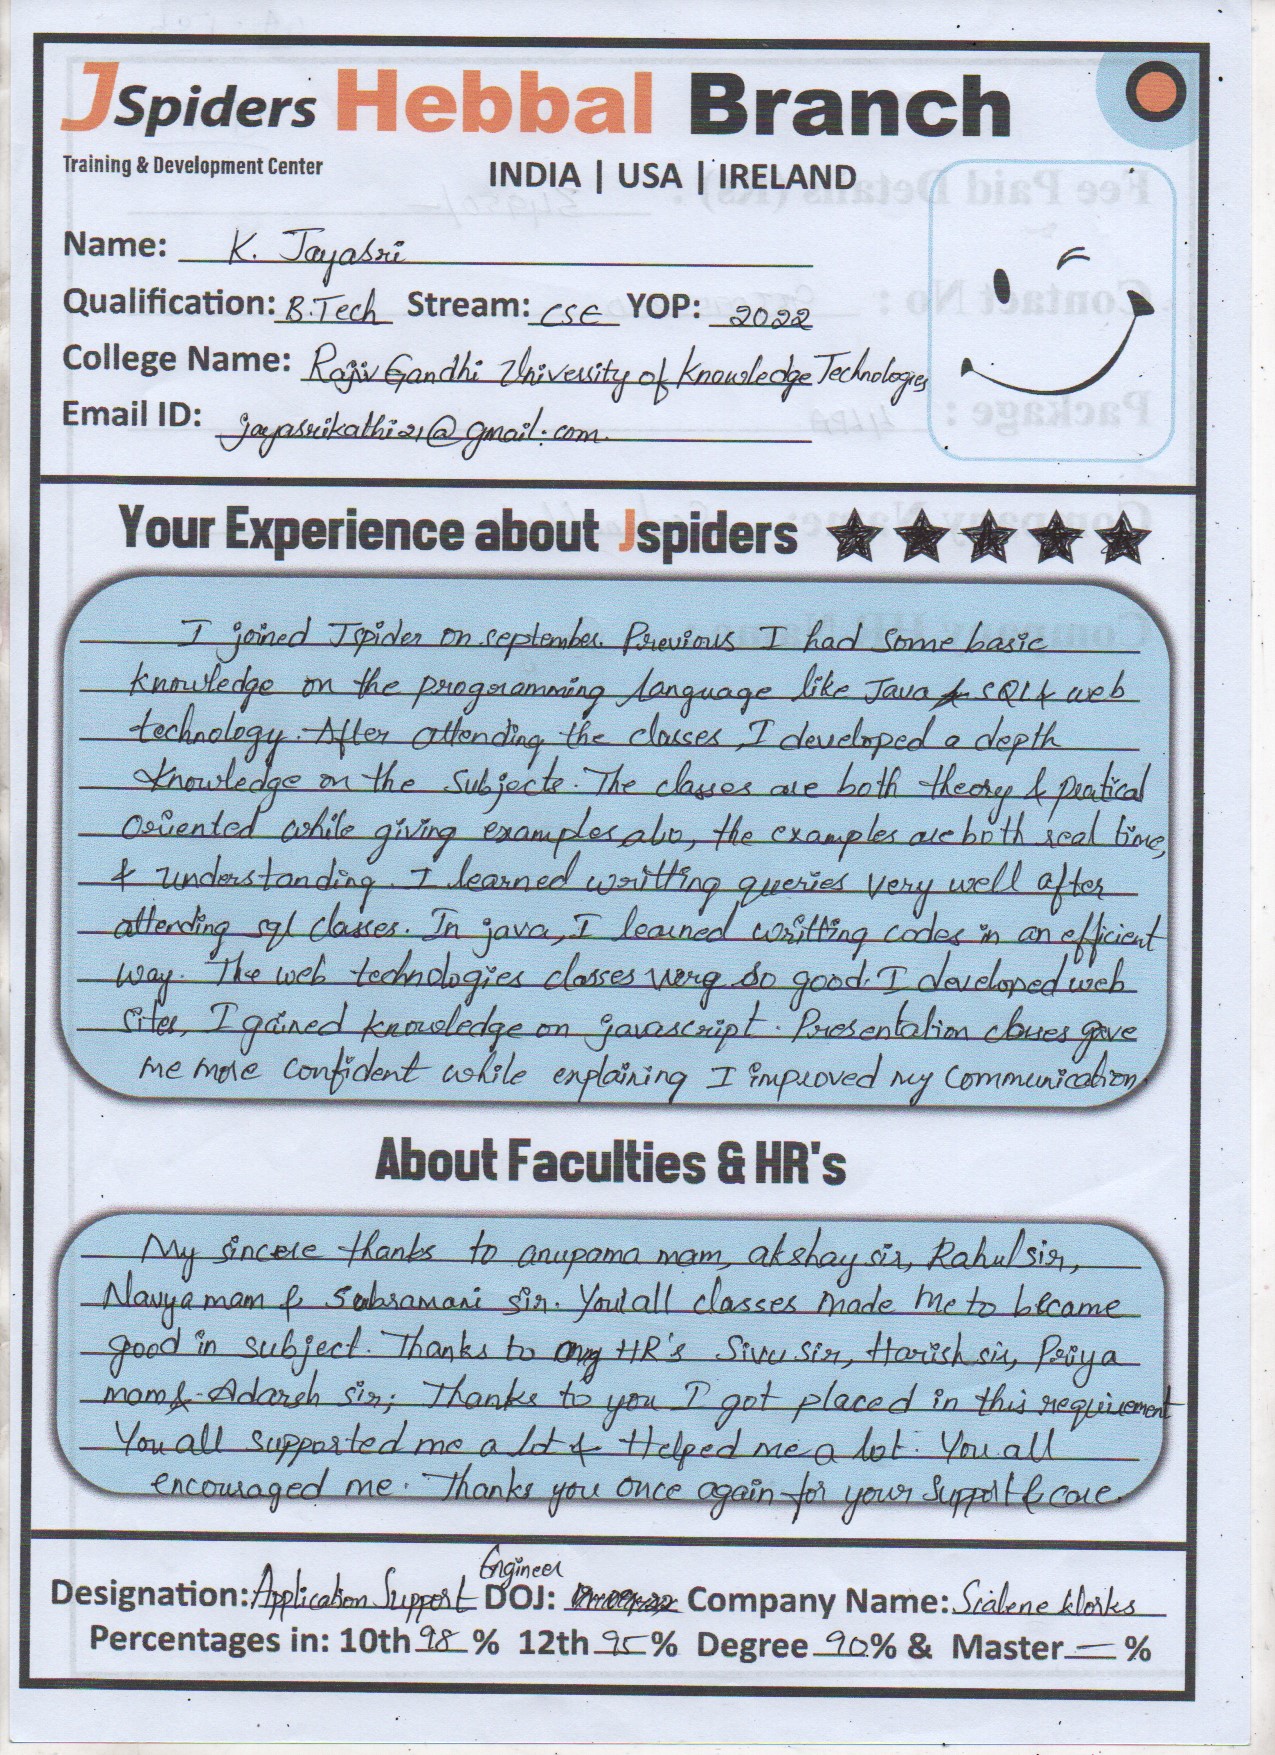 JSpiders Hebbal Branch
Training & Development Center
INDIA | USA | IRELAND
Name: K. Jayasri
Qualification: B.Tech Stream: CSE YOP: 2022
College Name: Rajiv Gandhi University of Knowledge Technologies
Email ID: jayasrikathi21@gmail.com
Your Experience about Jspiders
I joined Jspider on september. Previous I had some basic
knowledge on the programming language like Java & SQL & web
technology. After attending the classes, I developed a depth
knowledge on the subjects. The classes are both theory & pratical
oriented while giving examples also, the examples are both real time,
& understanding. I learned writting queries very well after
attending sql classes. In java, I learned writting codes in an efficient
way. The web technologies classes very so good. I developed web
sites, I gained knowledge on javascript. Presentation classes gave
me more confident while explaining I improved my communication.
About Faculties & HR's
My sincere thanks to anupama mam, akshay sir, Rahul sir,
Navya mam & Subramani sir. You all classes made me to became
good in subject. Thanks to my HR's Sivu sir, Harish sir, Priya
mam & Adarsh sir; Thanks to you I got placed in this requirement
You all supported me a lot & Helped me a lot. You all
encouraged me. Thanks you once again for your support & care.
Engineer
Designation: Application Support DOJ: Company Name:
Percentages in: 10th 98 % 12th 95 % Degree 90 % & Master — %
Fee Paid Details (Rs) :
Contact No :
Package : 4LPA
Company Name: